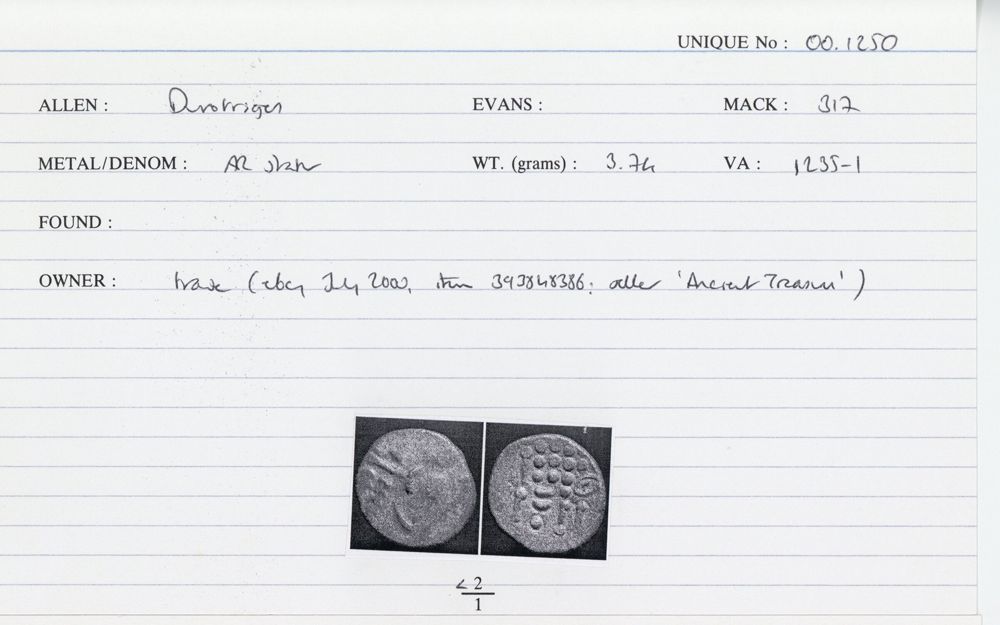 UNIQUE No : 00.1250
ALLEN : Durotriges EVANS : MACK : 317
METAL/DENOM : AR stater WT. (grams) : 3.74 VA : 1235-1
FOUND :
OWNER : trade (ebay July 2000, item 393848386; seller 'Ancient Treasures')
< 2
1